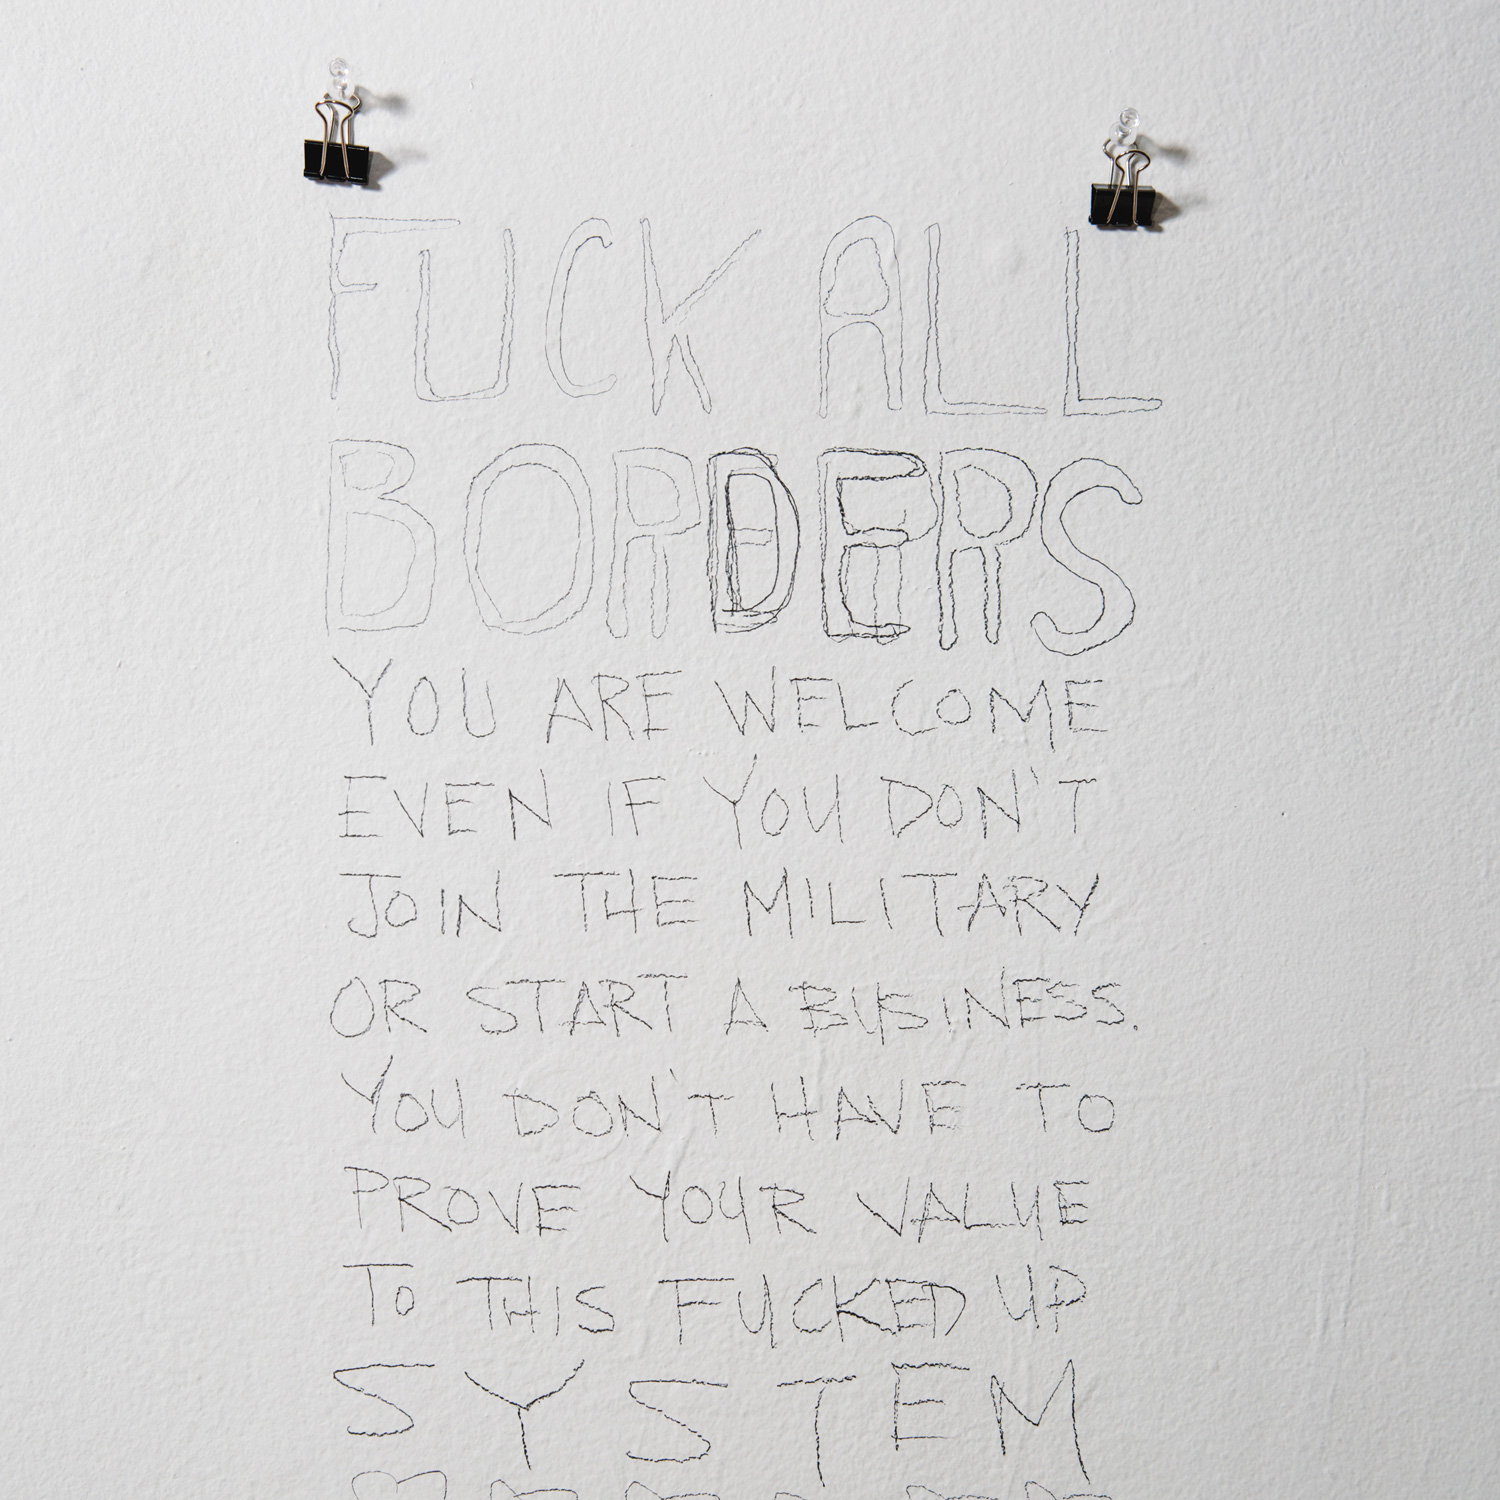 FUCK ALL
BORDERS
YOU ARE WELCOME
EVEN IF YOU DON'T
JOIN THE MILITARY
OR START A BUSINESS.
YOU DON'T HAVE TO
PROVE YOUR VALUE
TO THIS FUCKED UP
SYSTEM